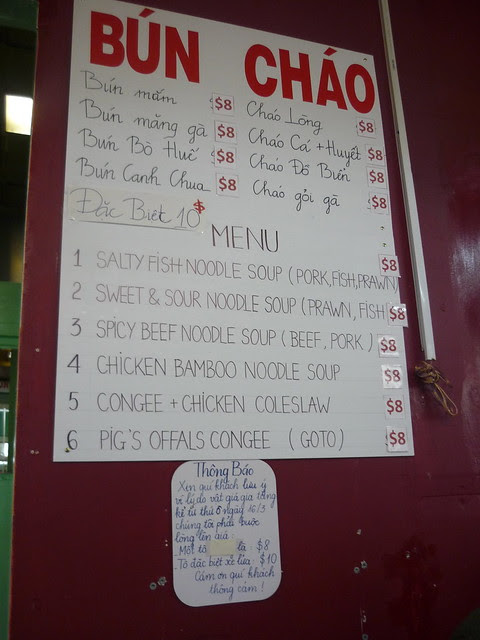 BÚN CHÁO
Bún mắm $8
Bún măng gà $8
Bún Bò Huế $8
Bún Canh Chua $8
Đặc Biệt 10$
Cháo Lòng $8
Cháo Cá + Huyết $8
Cháo Đồ Biển $8
Cháo gỏi gà $8
MENU
1 SALTY FISH NOODLE SOUP (PORK, FISH, PRAWN) $8
2 SWEET & SOUR NOODLE SOUP (PRAWN, FISH $8
3 SPICY BEEF NOODLE SOUP (BEEF, PORK.) $8
4 CHICKEN BAMBOO NOODLE SOUP $8
5 CONGEE + CHICKEN COLESLAW $8
6 PIG'S OFFALS CONGEE (GOTO) $8
Thông Báo
Xin quí khách lưu ý
vì lý do vật giá gia tăng
kể từ thứ 6 ngày 16/5
chúng tôi phải bước
lòng lên giá :
. Một tô là $8
. Tô đặc biệt xe lửa : $10
Cám ơn quí khách
thông cảm !